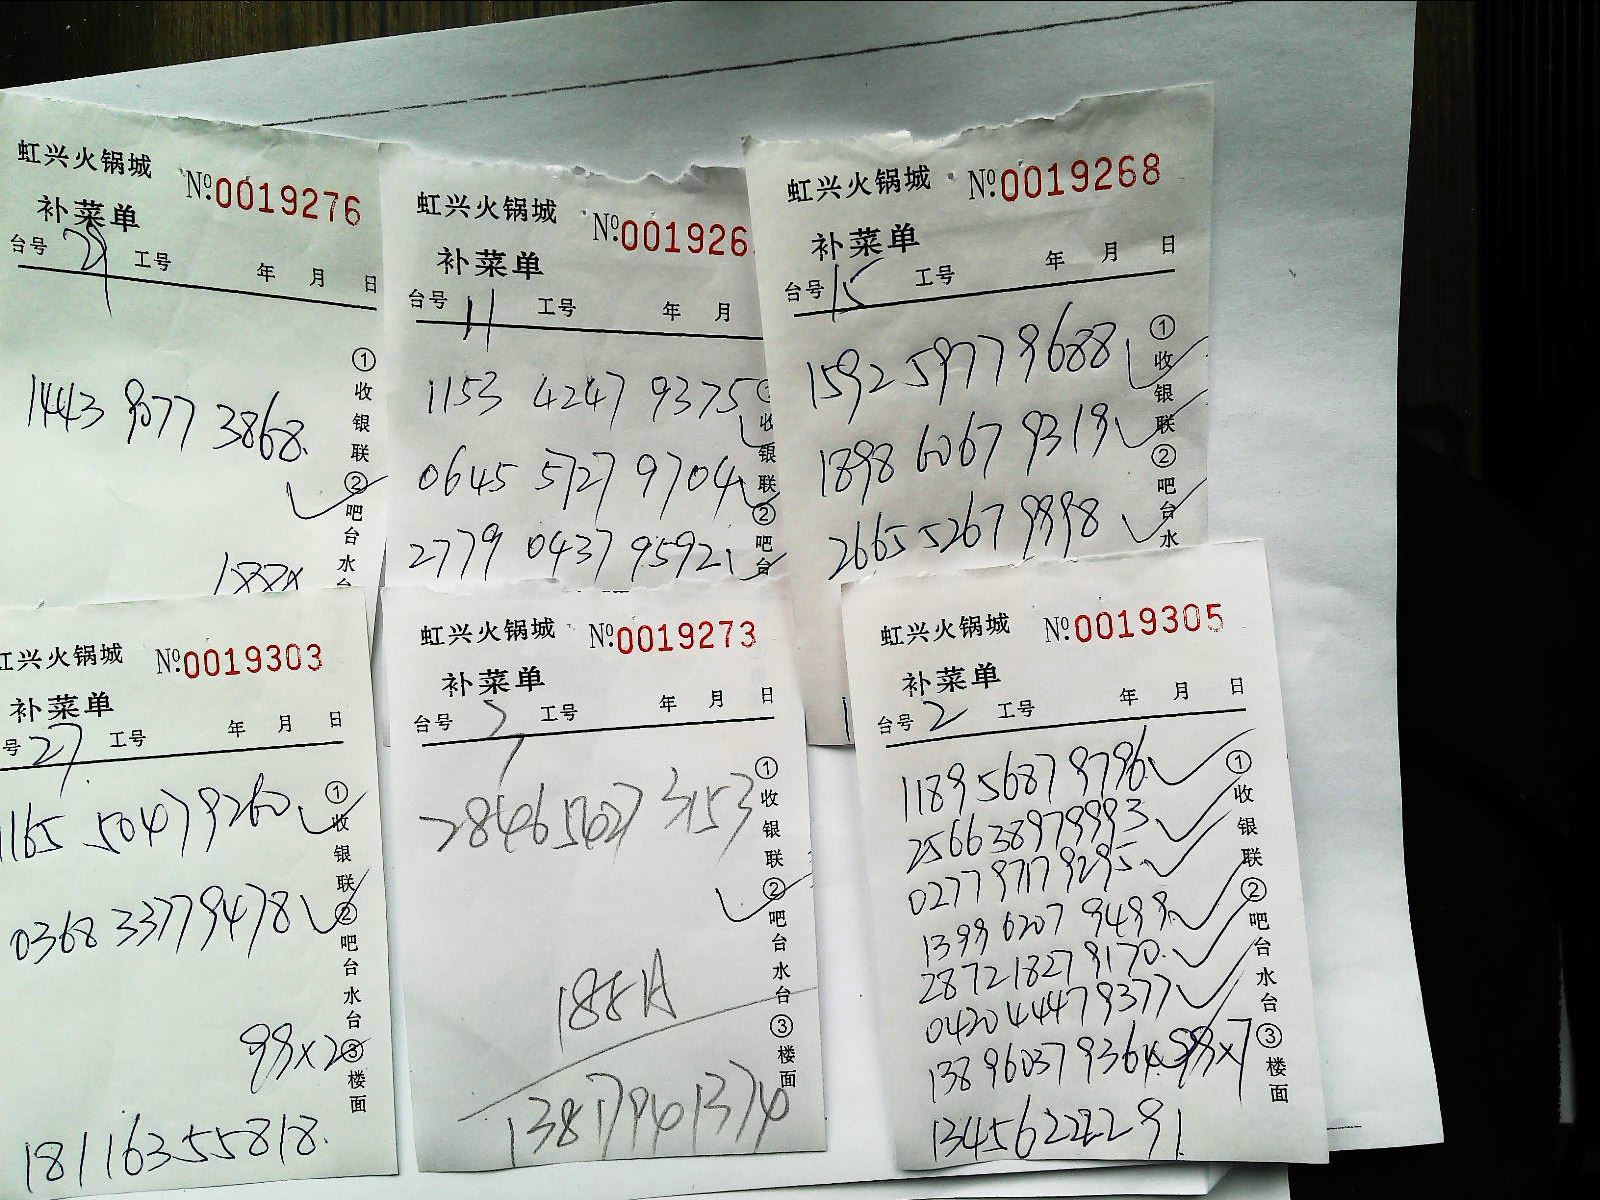 虹兴火锅城 №0019276
补菜单
台号 29 工号 年 月 日
1443 9077 3868.
①收银联②吧台水台
188x
虹兴火锅城 №001926
补菜单
台号 11 工号 年 月
1153 4247 9375
0645 5727 9704
2779 0437 9592
收银联②吧台
虹兴火锅城 №0019268
补菜单
台号 15 工号 年 月 日
1592 5977 9688
1898 6067 9319
2665 5267 9998
①收银联②吧台水
虹兴火锅城 №0019303
补菜单
号 27 工号 年 月 日
1165 5047 9260
0368 3377 9478
99x2
18116355818.
①收银联②吧台水台③楼面
虹兴火锅城 №0019273
补菜单
台号 7 工号 年 月 日
2846 5427 3153
188A
13817941374
①收银联②吧台水台③楼面
虹兴火锅城 №0019305
补菜单
台号 2 工号 年 月 日
1189 5687 9796
2566 3897 9993
0277 9717 9295
1399 6207 9499
2872 1827 9170
0420 4447 9377
1389 6037 9364 99x7
13456222291
①收银联②吧台水台③楼面